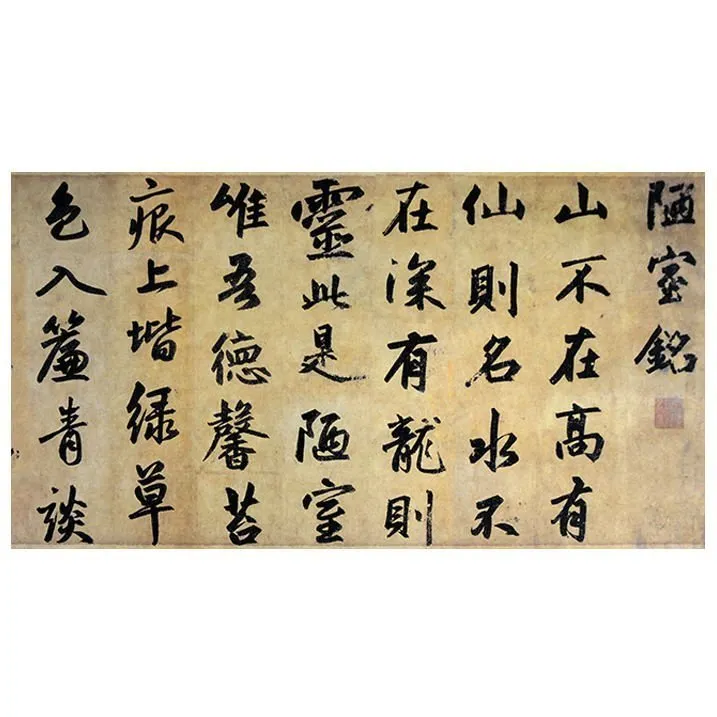 陋室銘
山不在高有
仙則名水不
在深有龍則
靈此是陋室
唯吾德馨苔
痕上堦綠草
色入簾青談